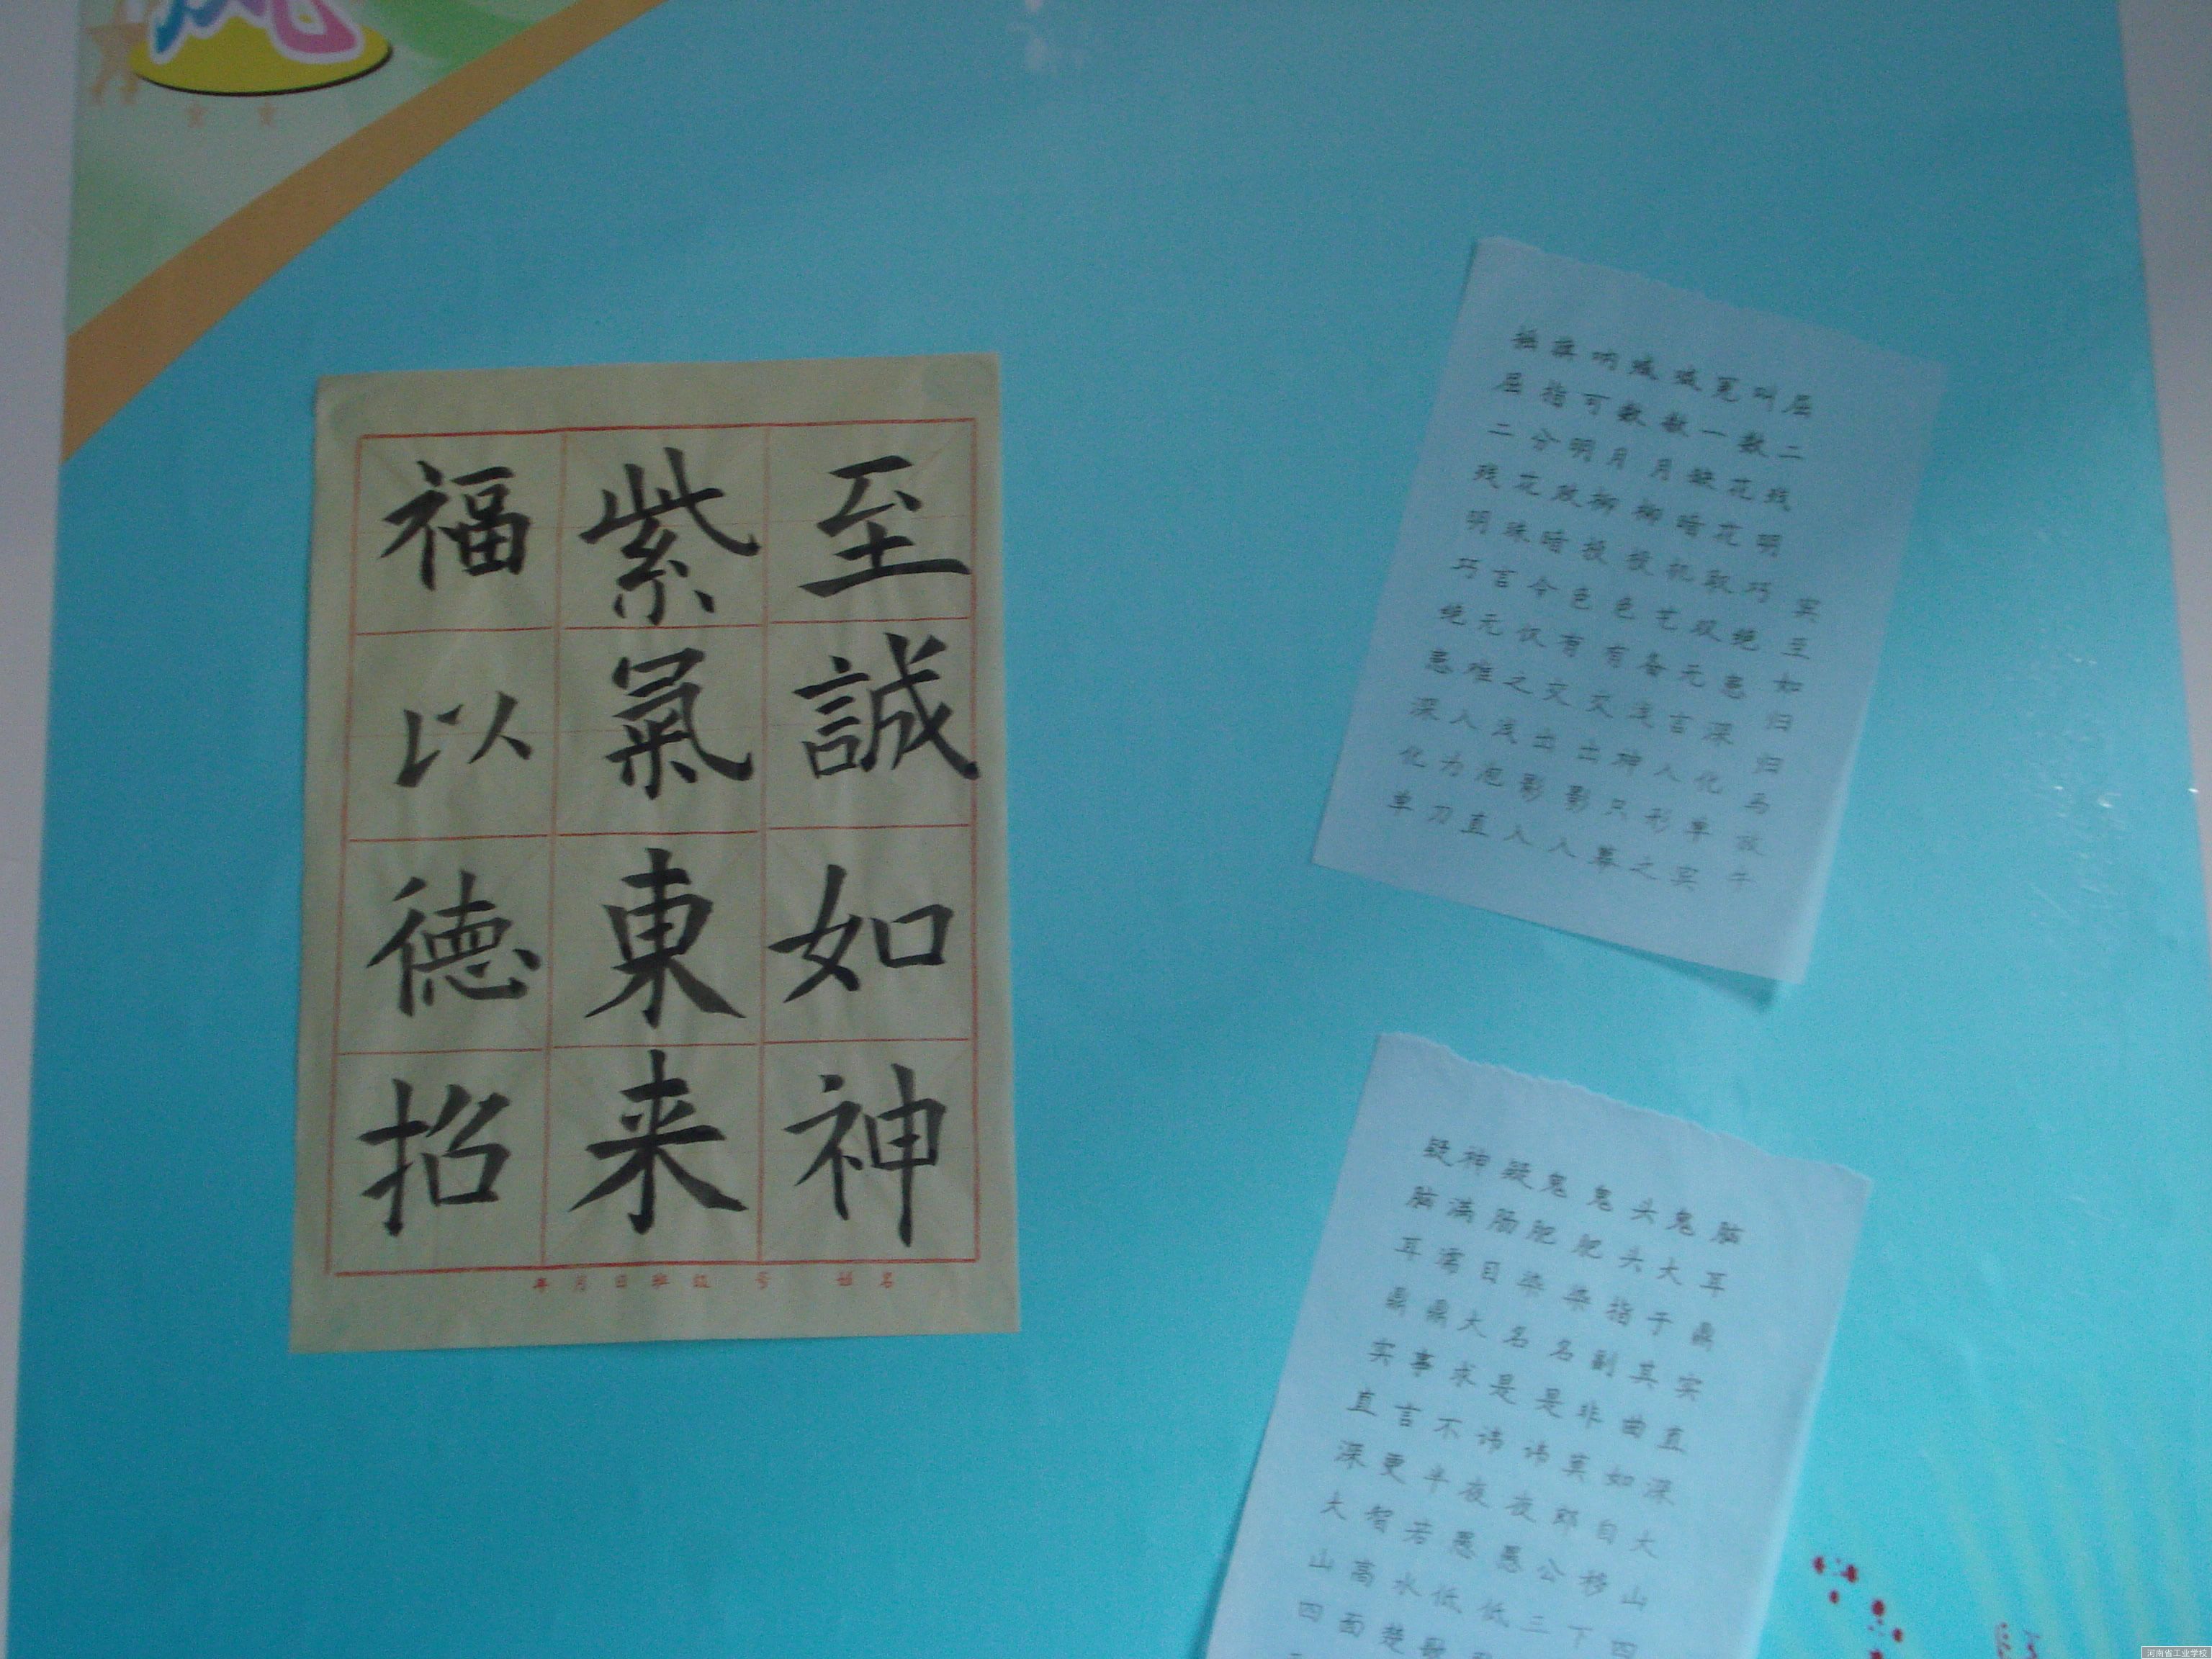 至誠如神
紫氣東来
福以德招
年 月 日 班 级 号 姓 名
摇旗呐喊 喊冤叫屈
屈指可数 数一数二
二分明月 月缺花残
残花败柳 柳暗花明
明珠暗投 投机取巧
巧言令色 色艺双绝
绝无仅有 有备无患
患难之交 交浅言深
深入浅出 出神入化
化为泡影 影只形单
单刀直入 入幕之宾
宾至如归 归马放牛
疑神疑鬼 鬼头鬼脑
脑满肠肥 肥头大耳
耳濡目染 染指于鼎
鼎鼎大名 名副其实
实事求是 是非曲直
直言不讳 讳莫如深
深更半夜 夜郎自大
大智若愚 愚公移山
山高水低 低三下四
四面楚歌
河南省工业学校